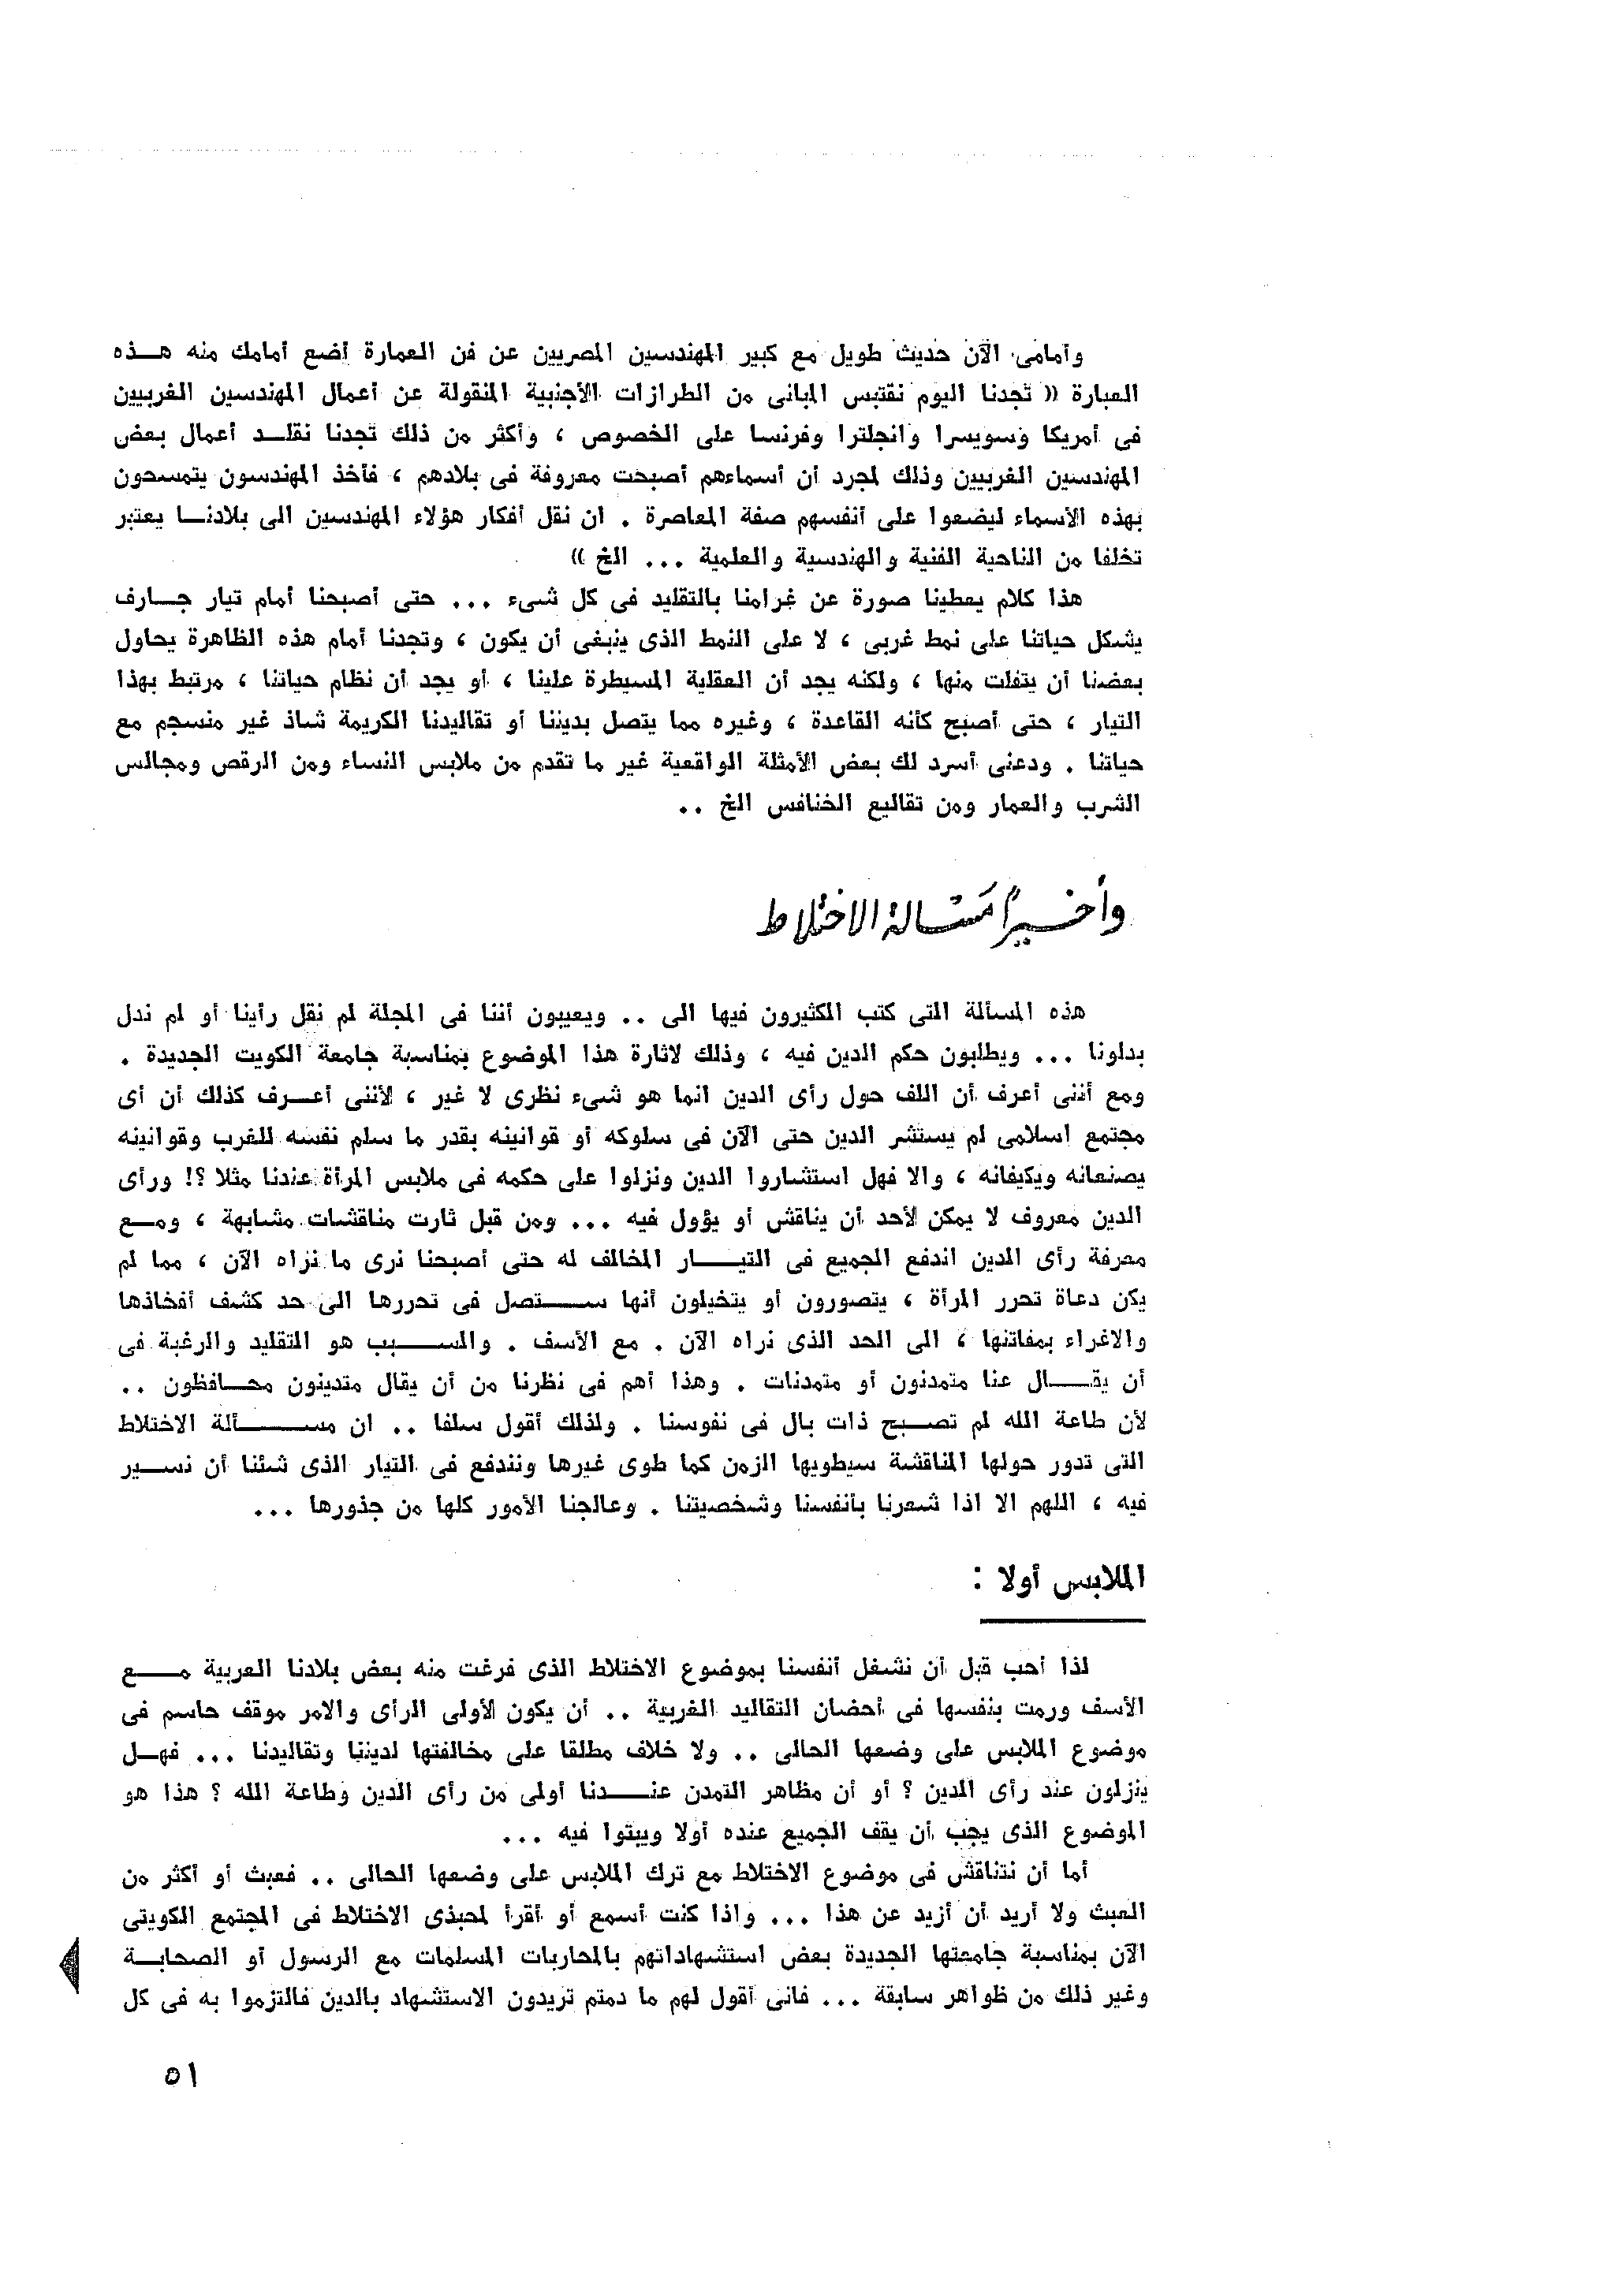 وأمامى الآن حديث طويل مع كبير المهندسين المصريين عن فن العمارة أضع أمامك منه هذه
العبارة « تجدنا اليوم نقتبس المبانى من الطرازات الأجنبية المنقولة عن أعمال المهندسين الغربيين
فى أمريكا وسويسرا وانجلترا وفرنسا على الخصوص ، وأكثر من ذلك تجدنا نقلد أعمال بعض
المهندسين الغربيين وذلك لمجرد أن أسماءهم أصبحت معروفة فى بلادهم ، فأخذ المهندسون يتمسحون
بهذه الأسماء ليضعوا على أنفسهم صفة المعاصرة . ان نقل أفكار هؤلاء المهندسين الى بلادنا يعتبر
تخلفا من الناحية الفنية والهندسية والعلمية ... الخ »
هذا كلام يعطينا صورة عن غرامنا بالتقليد فى كل شىء ... حتى أصبحنا أمام تيار جارف
يشكل حياتنا على نمط غربى ، لا على النمط الذى ينبغى أن يكون ، وتجدنا أمام هذه الظاهرة يحاول
بعضنا أن يتفلت منها ، ولكنه يجد أن العقلية المسيطرة علينا ، أو يجد أن نظام حياتنا ، مرتبط بهذا
التيار ، حتى أصبح كأنه القاعدة ، وغيره مما يتصل بديننا أو تقاليدنا الكريمة شاذ غير منسجم مع
حياتنا . ودعنى أسرد لك بعض الأمثلة الواقعية غير ما تقدم من ملابس النساء ومن الرقص ومجالس
الشرب والعمار ومن تقاليع الخنافس الخ ..
وأخيراً مسألة الاختلاط
هذه المسألة التى كتب الكثيرون فيها الى .. ويعيبون أننا فى المجلة لم نقل رأينا أو لم ندل
بدلونا ... ويطلبون حكم الدين فيه ، وذلك لاثارة هذا الموضوع بمناسبة جامعة الكويت الجديدة .
ومع أننى أعرف أن اللف حول رأى الدين انما هو شىء نظرى لا غير ، لأننى أعرف كذلك أن أى
مجتمع اسلامى لم يستشر الدين حتى الآن فى سلوكه أو قوانينه بقدر ما سلم نفسه للغرب وقوانينه
يصنعانه ويكيفانه ، والا فهل استشاروا الدين ونزلوا على حكمه فى ملابس المرأة عندنا مثلا ؟! ورأى
الدين معروف لا يمكن لأحد أن يناقش أو يؤول فيه ... ومن قبل ثارت مناقشات مشابهة ، ومع
معرفة رأى الدين اندفع الجميع فى التيار المخالف له حتى أصبحنا نرى ما نراه الآن ، مما لم
يكن دعاة تحرر المرأة ، يتصورون أو يتخيلون أنها ستصل فى تحررها الى حد كشف أفخاذها
والاغراء بمفاتنها ، الى الحد الذى نراه الآن . مع الأسف . والسبب هو التقليد والرغبة فى
أن يقال عنا متمدنون أو متمدنات . وهذا أهم فى نظرنا من أن يقال متدينون محافظون ..
لأن طاعة الله لم تصبح ذات بال فى نفوسنا . ولذلك أقول سلفا .. ان مسألة الاختلاط
التى تدور حولها المناقشة سيطويها الزمن كما طوى غيرها ونندفع فى التيار الذى شئنا أن نسير
فيه ، اللهم الا اذا شعرنا بأنفسنا وشخصيتنا . وعالجنا الأمور كلها من جذورها ...
الملابس أولا :
لذا أحب قبل أن نشغل أنفسنا بموضوع الاختلاط الذى فرغت منه بعض بلادنا العربية مع
الأسف ورمت بنفسها فى أحضان التقاليد الغربية .. أن يكون لأولى الرأى والامر موقف حاسم فى
موضوع الملابس على وضعها الحالى .. ولا خلاف مطلقا على مخالفتها لديننا وتقاليدنا ... فهل
ينزلون عند رأى الدين ؟ أو أن مظاهر التمدن عندنا أولى من رأى الدين وطاعة الله ؟ هذا هو
الموضوع الذى يجب أن يقف الجميع عنده أولا ويبتوا فيه ...
أما أن نتناقش فى موضوع الاختلاط مع ترك الملابس على وضعها الحالى .. فعبث أو أكثر من
العبث ولا أريد أن أزيد عن هذا ... واذا كنت أسمع أو أقرأ لمحبذى الاختلاط فى المجتمع الكويتى
الآن بمناسبة جامعتها الجديدة بعض استشهاداتهم بالمحاربات المسلمات مع الرسول أو الصحابة
وغير ذلك من ظواهر سابقة ... فانى أقول لهم ما دمتم تريدون الاستشهاد بالدين فالتزموا به فى كل
٥١